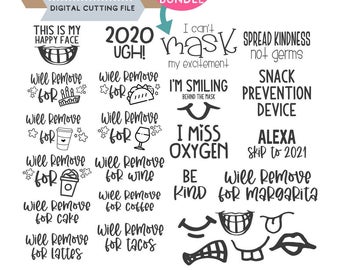 DIGITAL CUTTING FILE
BUNDLE
THIS IS MY
HAPPY FACE
2020
UGH!
I can't
mask
my excitement
SPREAD KINDNESS
not germs
will Remove
FOR
will Remove
FOR
I'M SMILING
BEHIND THE MASK
SNACK
PREVENTION
DEVICE
will Remove
FOR
will Remove
FOR
I MISS
OXYGEN
ALEXA
skip to 2021
will Remove
FOR
will Remove
FOR wine
BE
KIND
will Remove
FOR MARGARITA
will Remove
FOR cake
will Remove
FOR coffee
will Remove
FOR lattes
will Remove
FOR tacos